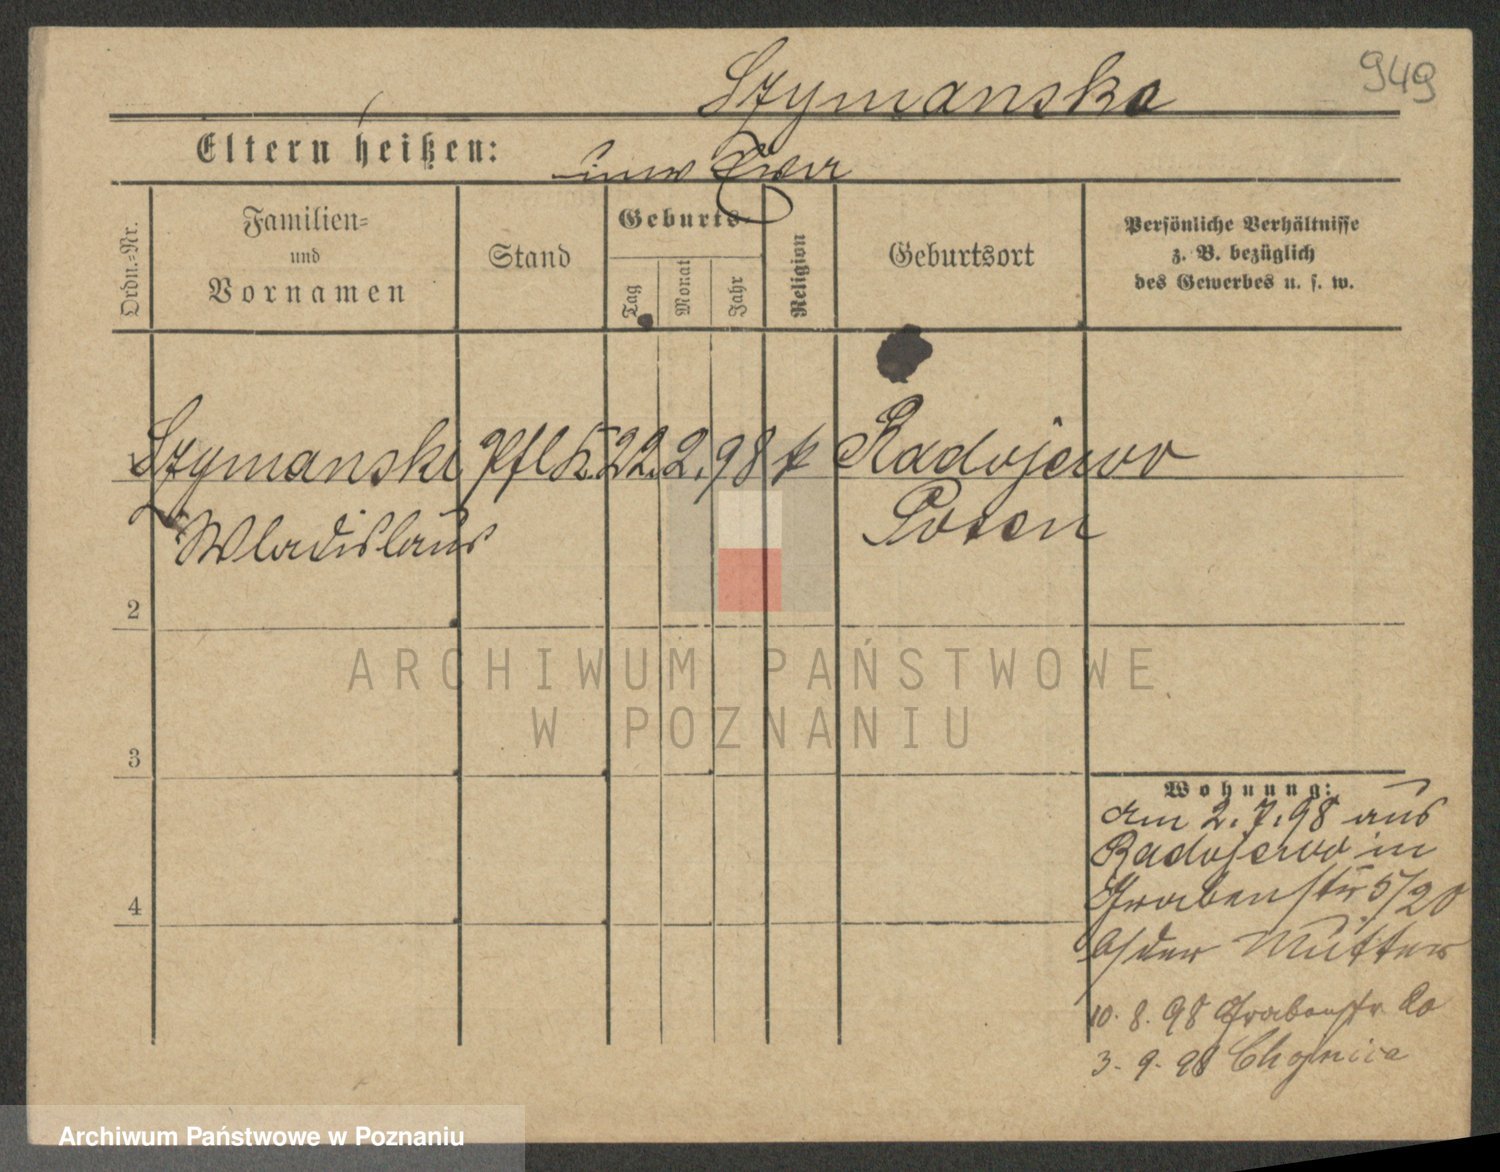 949
Szymanska
Eltern heißen:
Ordn.-Nr.
Familien-
und
Vornamen
Stand
Geburts-
Tag
Monat
Jahr
Religion
Geburtsort
Persönliche Verhältnisse
z. B. bezüglich
des Gewerbes u. s. w.
Szymanski Pflk. 22. 2. 98 k Radojewo
Wladislaus Posen
2
3
4
Wohnung:
am 2. 7. 98 aus
Radojewo in
Grabenstr 5/20
b/der Mutter
10. 8. 98 Grabenstr 20
3. 9. 98
ARCHIWUM PAŃSTWOWE
W POZNANIU
Archiwum Państwowe w Poznaniu